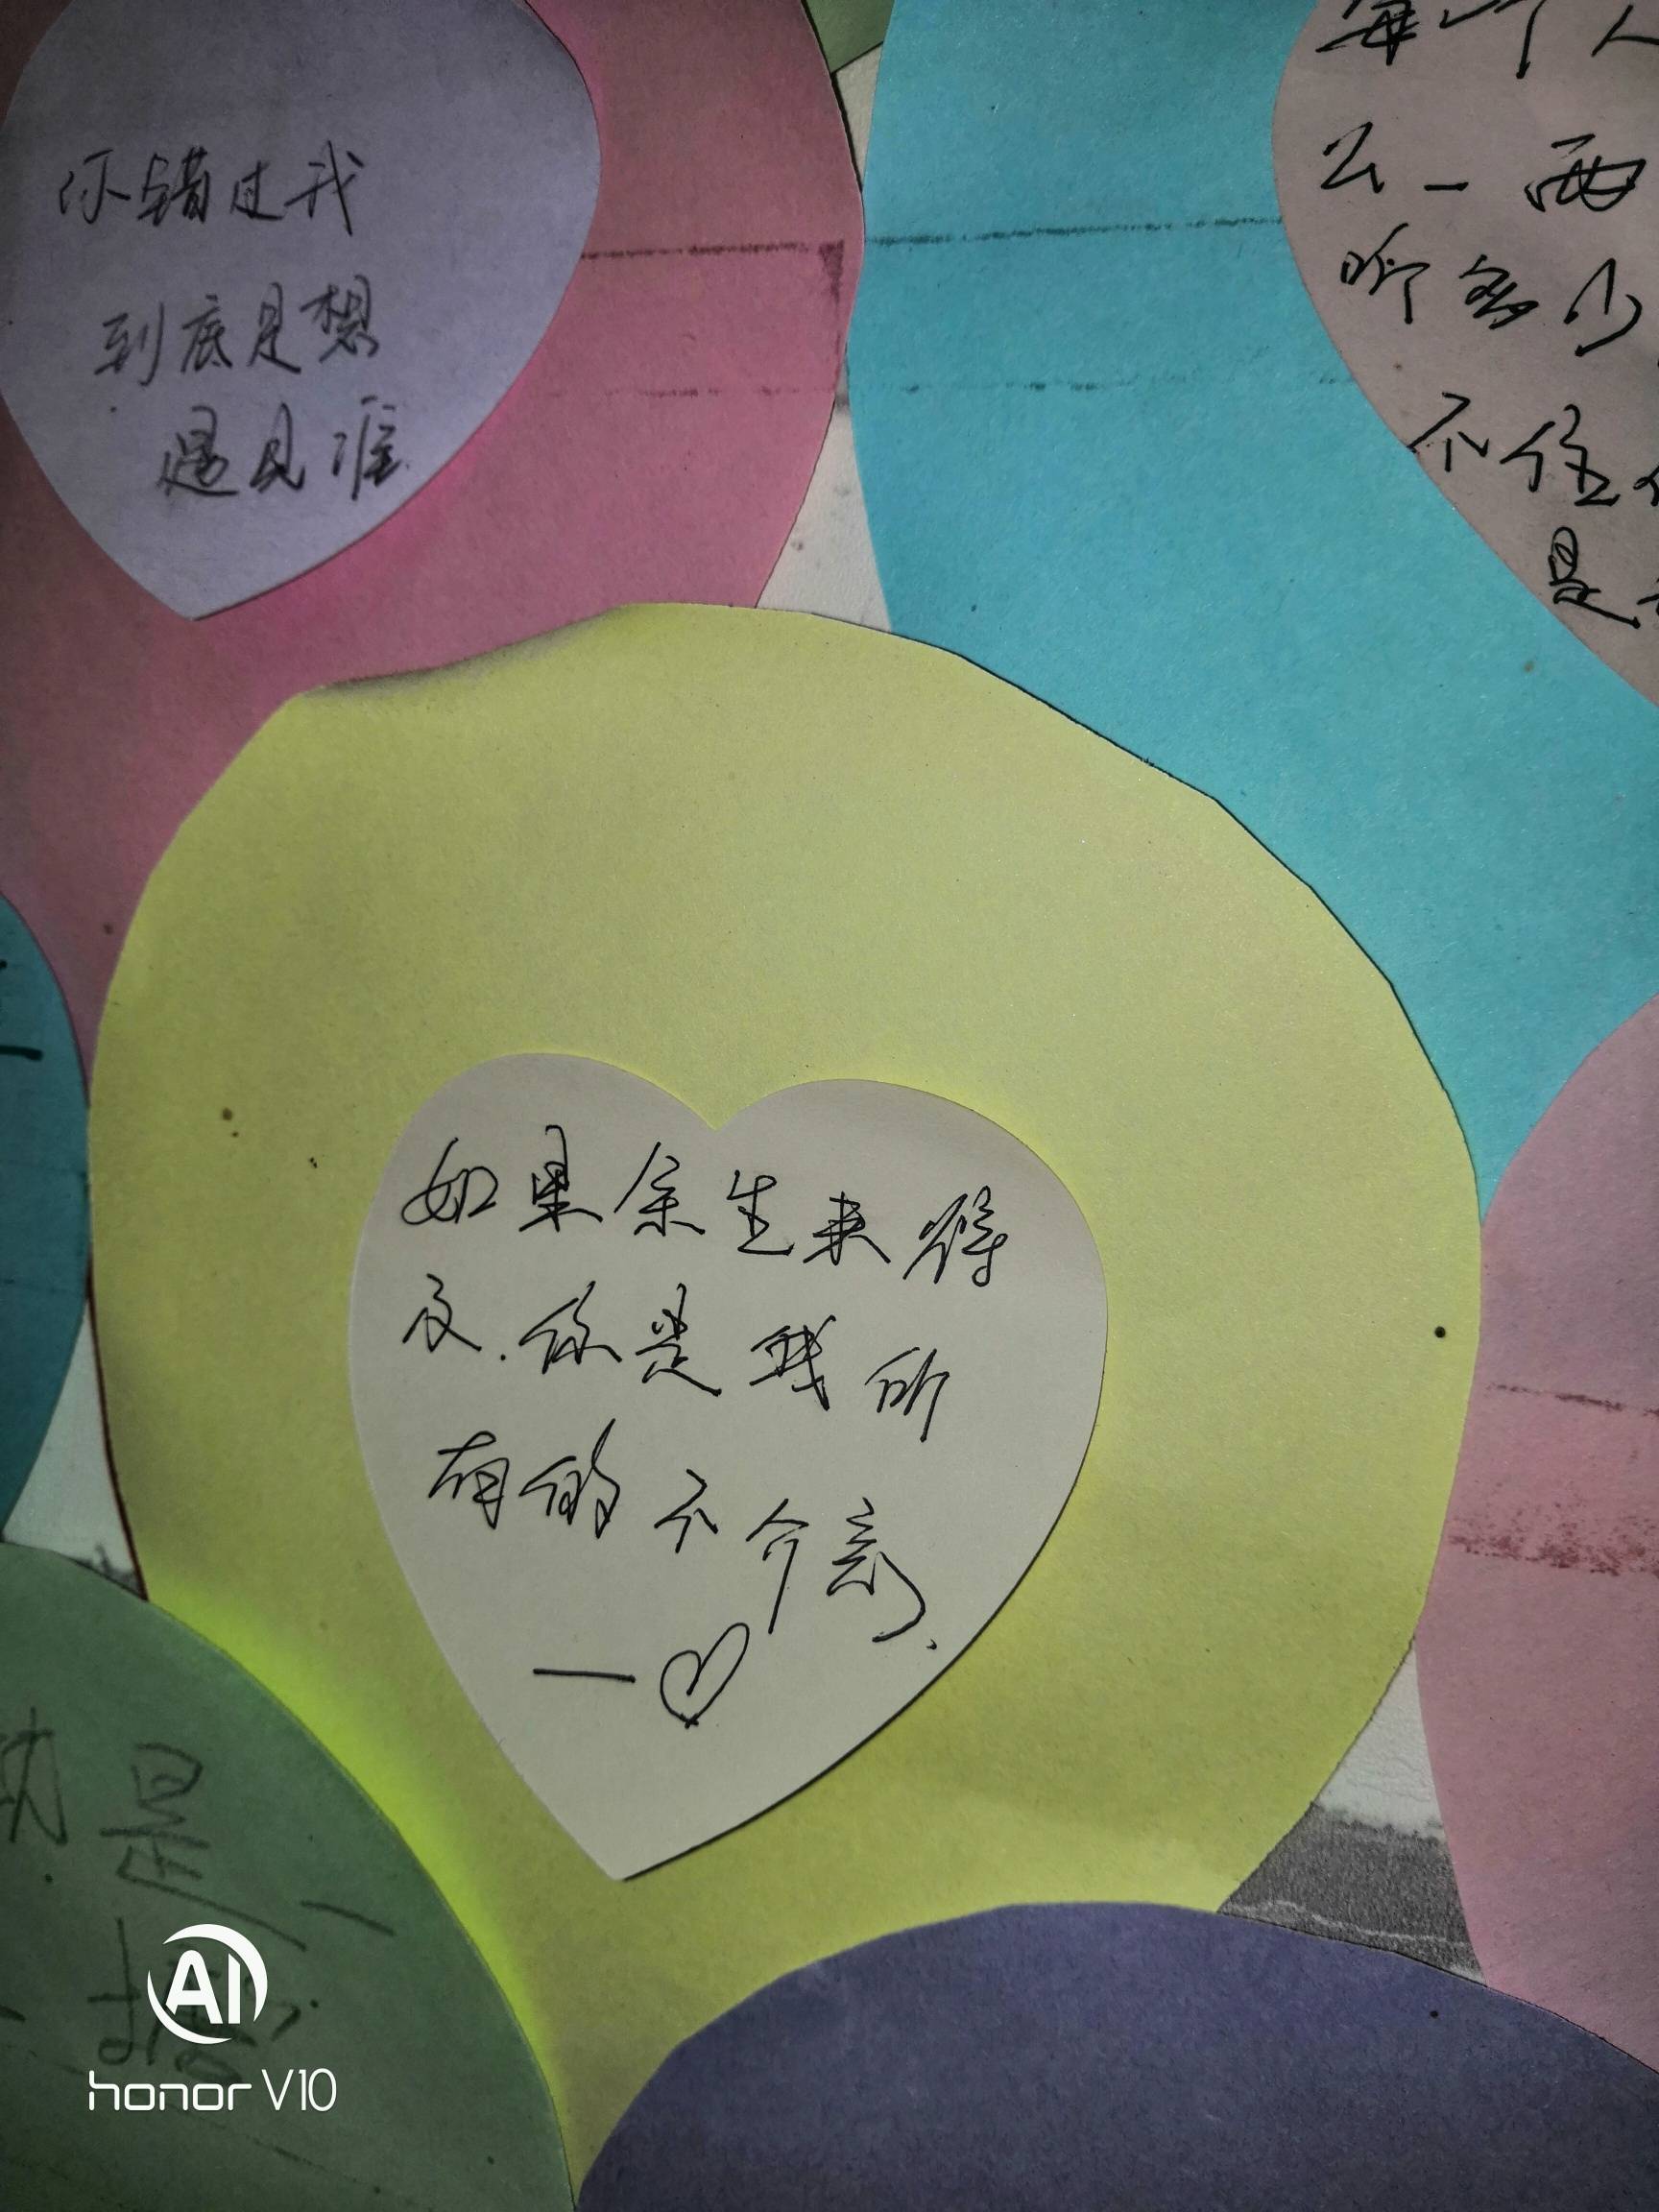 你错过我
到底是想
遇见谁
每一个人
么一两
听多少
不住
是
如果余生来得
及.你是我所
有的不介意.
一♡
是一
AI
honor V10